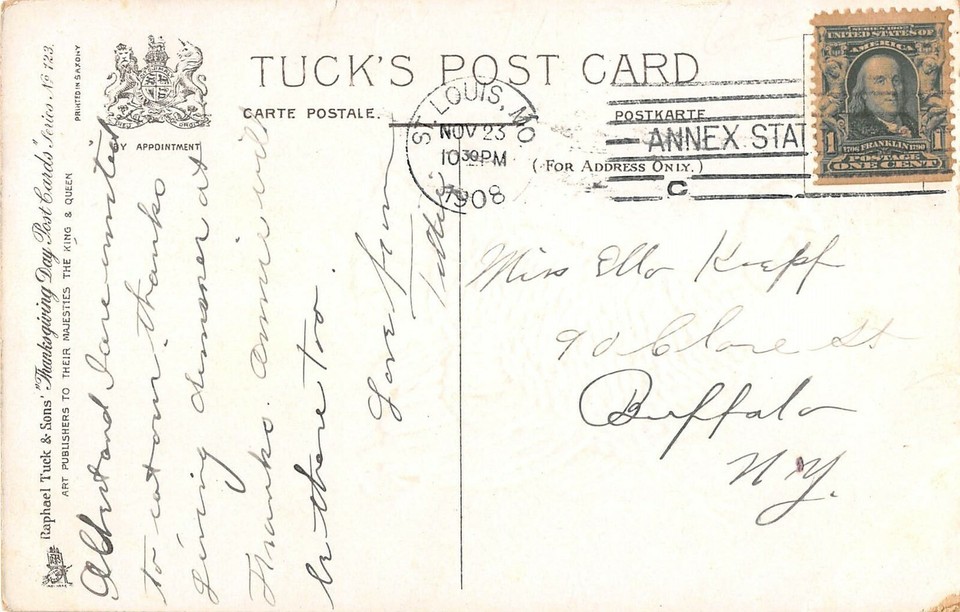 TUCK'S POST CARD
CARTE POSTALE.
POSTKARTE
(FOR ADDRESS ONLY.)
BY APPOINTMENT
PRINTED IN SAXONY
Raphael Tuck & Sons' "Thanksgiving Day Post Cards" Series No 123.
ART PUBLISHERS TO THEIR MAJESTIES THE KING & QUEEN
ST. LOUIS, MO
NOV 23
10 30 PM
1908
ANNEX STAT
C
SERIES 1902
UNITED STATES OF
AMERICA
1 1
1706 FRANKLIN 1790
POSTAGE
ONE CENT
Albert and I are invited
to eat our thanks
giving dinner at
Thanks. Annie will
be there too.
Love from
Miss Ella
90 Clare St
Buffalo
N.Y.